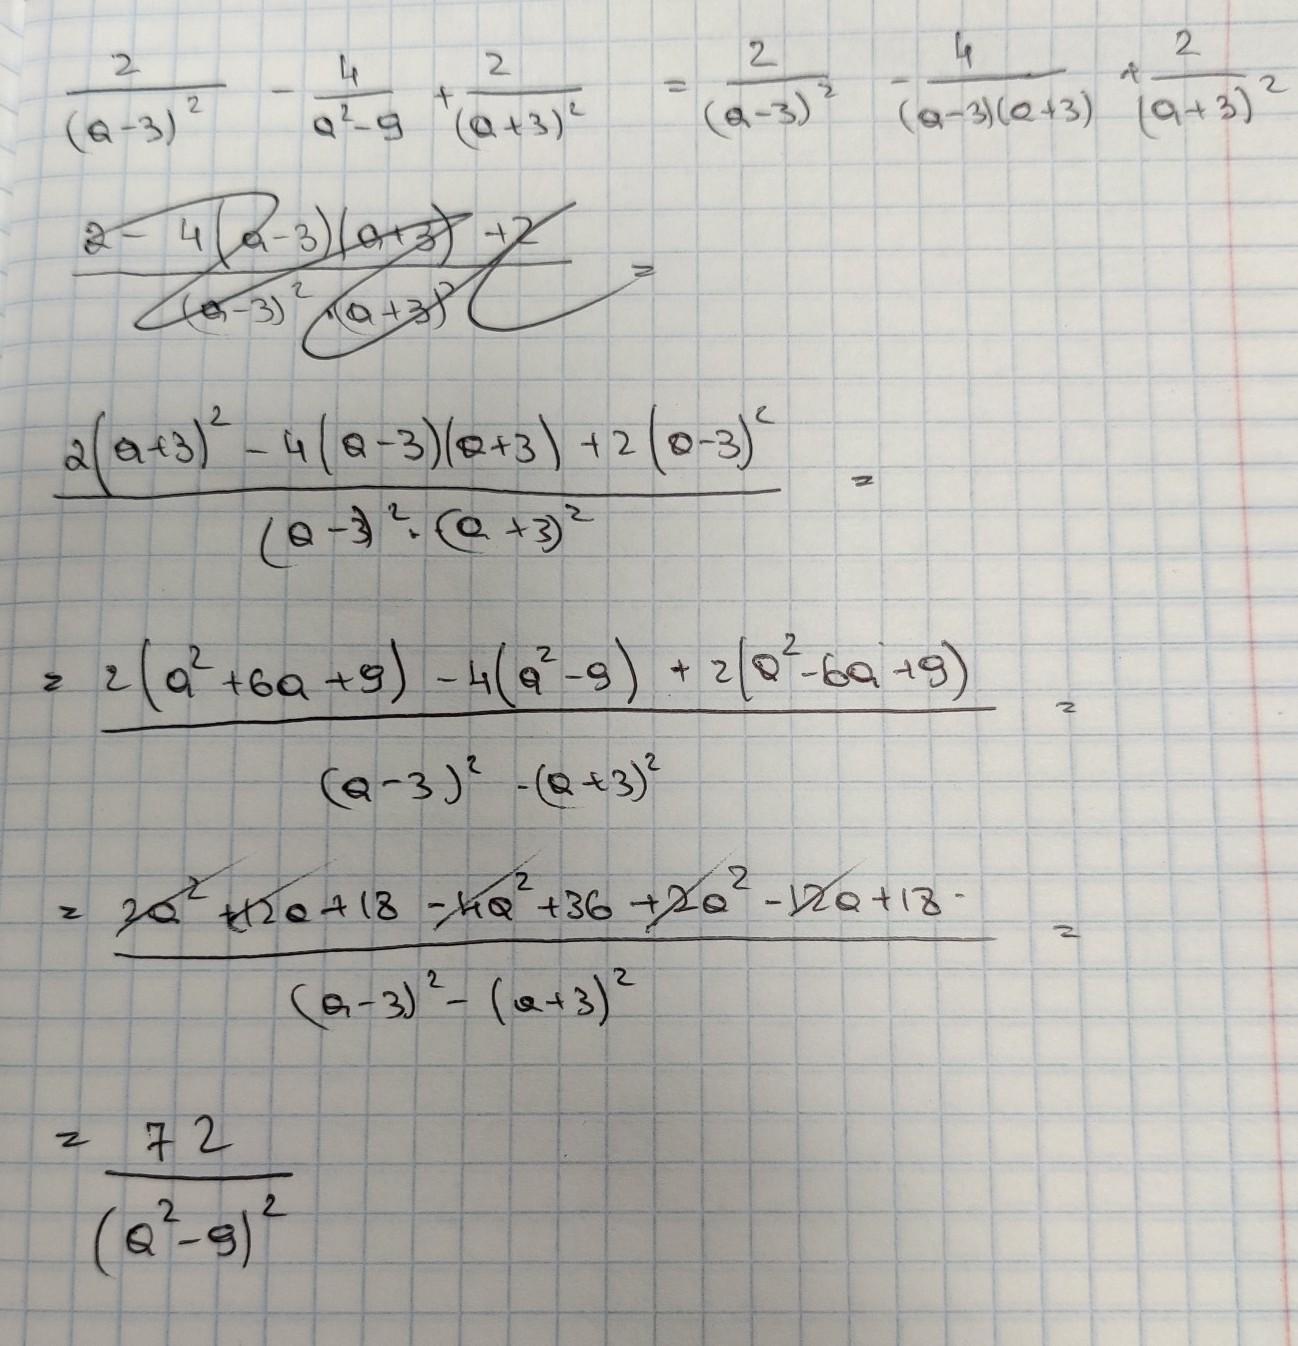 2/(a-3)² - 4/(a²-9) + 2/(a+3)² = 2/(a-3)² - 4/((a-3)(a+3)) + 2/(a+3)²
(2 - 4(a-3)(a+3) + 2)/((a-3)²·(a+3)²) =
(2(a+3)² - 4(a-3)(a+3) + 2(a-3)²)/((a-3)²·(a+3)²) =
= (2(a²+6a+9) - 4(a²-9) + 2(a²-6a+9))/((a-3)² - (a+3)²) =
= (2a² + 12a + 18 - 4a² + 36 + 2a² - 12a + 18)/((a-3)² - (a+3)²) =
= 72/(a²-9)²